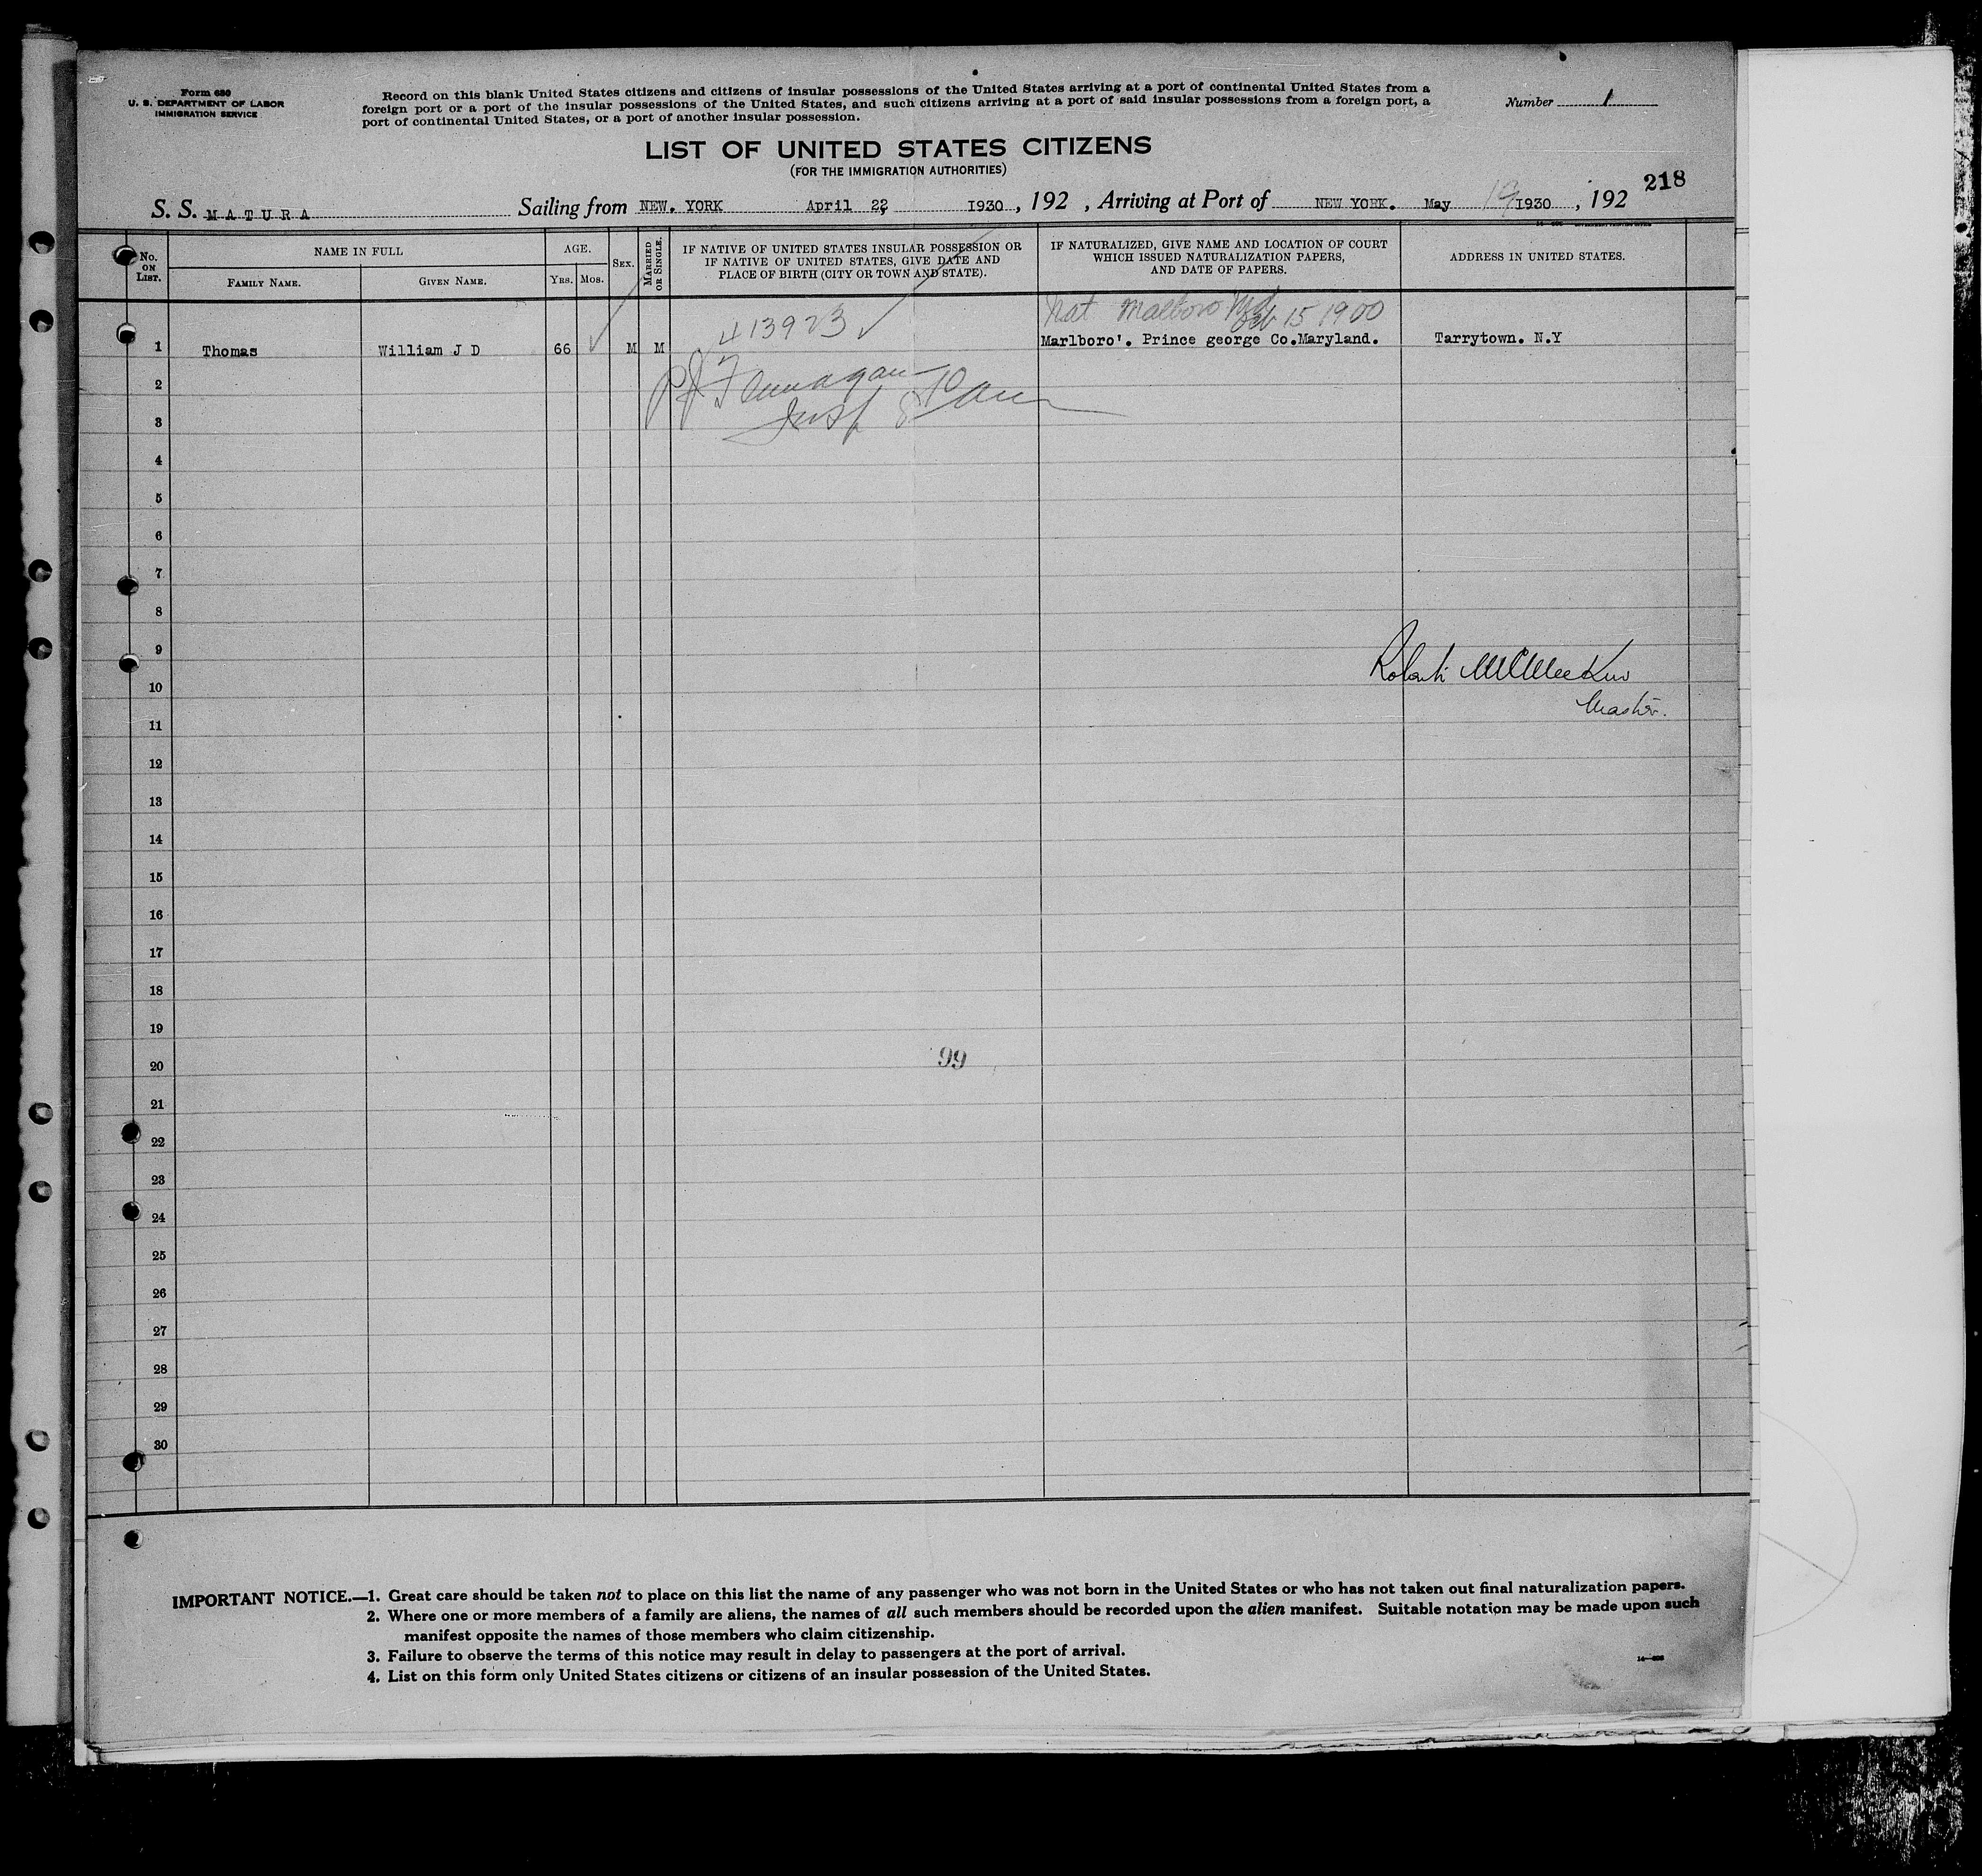 Form 630
U. S. DEPARTMENT OF LABOR
IMMIGRATION SERVICE
Record on this blank United States citizens and citizens of insular possessions of the United States arriving at a port of continental United States from a
foreign port or a port of the insular possessions of the United States, and such citizens arriving at a port of said insular possessions from a foreign port, a
port of continental United States, or a port of another insular possession.
Number 1
LIST OF UNITED STATES CITIZENS
(FOR THE IMMIGRATION AUTHORITIES)
218
S. S. MATURA Sailing from NEW. YORK April 22, 1930, 192 , Arriving at Port of NEW YORK. May 19 1930, 192
No. ON LIST.
NAME IN FULL
FAMILY NAME. GIVEN NAME.
AGE.
YRS. MOS.
SEX.
MARRIED OR SINGLE.
IF NATIVE OF UNITED STATES INSULAR POSSESSION OR
IF NATIVE OF UNITED STATES, GIVE DATE AND
PLACE OF BIRTH (CITY OR TOWN AND STATE).
IF NATURALIZED, GIVE NAME AND LOCATION OF COURT
WHICH ISSUED NATURALIZATION PAPERS,
AND DATE OF PAPERS.
ADDRESS IN UNITED STATES.
413923 ✓ Nat Malboro Md Feb 15 1900
1 Thomas William J D 66 ✓ M M Marlboro'. Prince george Co.Maryland. Tarrytown. N.Y
2 P J Flannagan
3 Insp
4
5
6
7
8
9
10
Master.
11
12
13
14
15
16
17
18
19
20 99
21
22
23
24
25
26
27
28
29
30
IMPORTANT NOTICE.—1. Great care should be taken not to place on this list the name of any passenger who was not born in the United States or who has not taken out final naturalization papers.
2. Where one or more members of a family are aliens, the names of all such members should be recorded upon the alien manifest. Suitable notation may be made upon such
manifest opposite the names of those members who claim citizenship.
3. Failure to observe the terms of this notice may result in delay to passengers at the port of arrival.
4. List on this form only United States citizens or citizens of an insular possession of the United States.